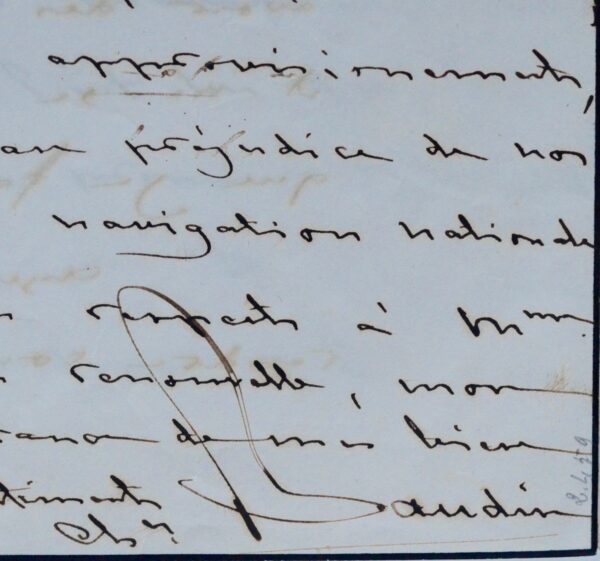 approvisionnements,
au préjudice de nos
navigation nationale
respects à Mme
renouvelle, mon
de mes bien
timents
Chr. Baudin